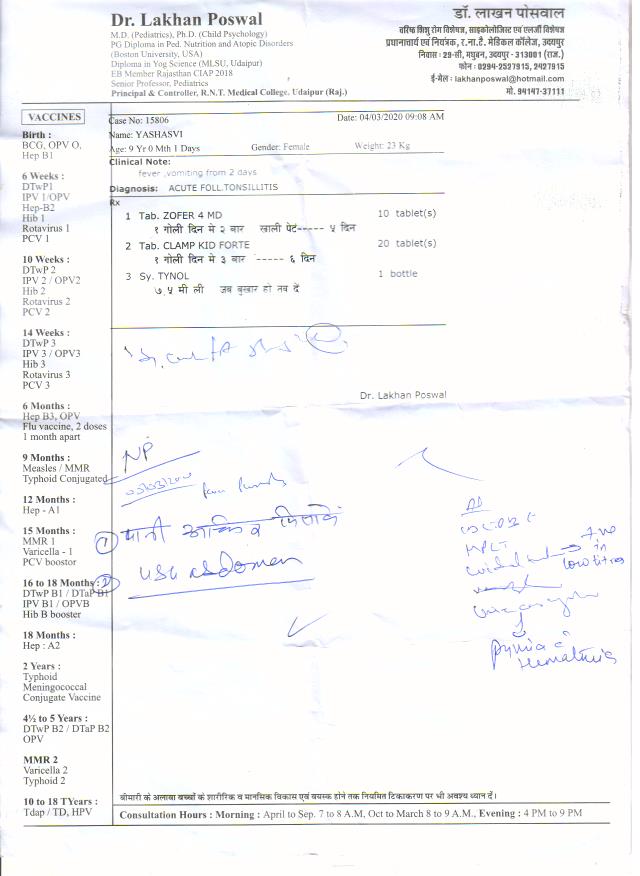 Dr. Lakhan Poswal
M.D. (Pediatrics), Ph.D. (Child Psychology)
PG Diploma in Ped. Nutrition and Atopic Disorders
(Boston University, USA)
Diploma in Yog Science (MLSU, Udaipur)
EB Member Rajasthan CIAP 2018
Senior Professor, Pediatrics
Principal & Controller, R.N.T. Medical College. Udaipur (Raj.)
डॉ. लाखन पोसवाल
वरिष्ठ शिशु रोग विशेषज्ञ, साइकोलोजिस्ट एवं एलर्जी विशेषज्ञ
प्रधानाचार्य एवं नियंत्रक, र.ना.टै. मेडिकल कॉलेज, उदयपुर
निवास : 29-सी, मधुवन, उदयपुर - 313001 (राज.)
फोन : 0294-2527915, 2427915
ई-मैल : lakhanposwal@hotmail.com
मो. 94147-37111
VACCINES
Birth :
BCG, OPV O,
Hep B1
6 Weeks :
DTwP1
IPV 1/OPV
Hep-B2
Hib 1
Rotavirus 1
PCV 1
10 Weeks :
DTwP 2
IPV 2 / OPV2
Hib 2
Rotavirus 2
PCV 2
14 Weeks :
DTwP 3
IPV 3 / OPV3
Hib 3
Rotavirus 3
PCV 3
6 Months :
Hep B3, OPV
Flu vaccine, 2 doses
1 month apart
9 Months :
Measles / MMR
Typhoid Conjugated
12 Months :
Hep - A1
15 Months :
MMR 1
Varicella - 1
PCV boostor
16 to 18 Months :
DTwP B1 / DTaP B1
IPV B1 / OPVB
Hib B booster
18 Months :
Hep : A2
2 Years :
Typhoid
Meningococcal
Conjugate Vaccine
4½ to 5 Years :
DTwP B2 / DTaP B2
OPV
MMR 2
Varicella 2
Typhoid 2
10 to 18 TYears :
Tdap / TD, HPV
Case No: 15806 Date: 04/03/2020 09:08 AM
Name: YASHASVI
Age: 9 Yr 0 Mth 1 Days Gender: Female Weight: 23 Kg
Clinical Note:
fever ,vomiting from 2 days
Diagnosis: ACUTE FOLL.TONSILLITIS
Rx
1 Tab. ZOFER 4 MD 10 tablet(s)
१ गोली दिन मे २ बार खाली पेट----- ५ दिन
2 Tab. CLAMP KID FORTE 20 tablet(s)
१ गोली दिन मे ३ बार ----- ६ दिन
3 Sy. TYNOL 1 bottle
७.५ मी ली जब बुखार हो तब दें
Dr. Lakhan Poswal
NP
① पानी
② USG abdomen
+ve
in
low titres
pyuria c
hematuria
बीमारी के अलावा बच्चों के शारीरिक व मानसिक विकास एवं वयस्क होने तक नियमित टिकाकरण पर भी अवश्य ध्यान दें।
Consultation Hours : Morning : April to Sep. 7 to 8 A.M, Oct to March 8 to 9 A.M., Evening : 4 PM to 9 PM